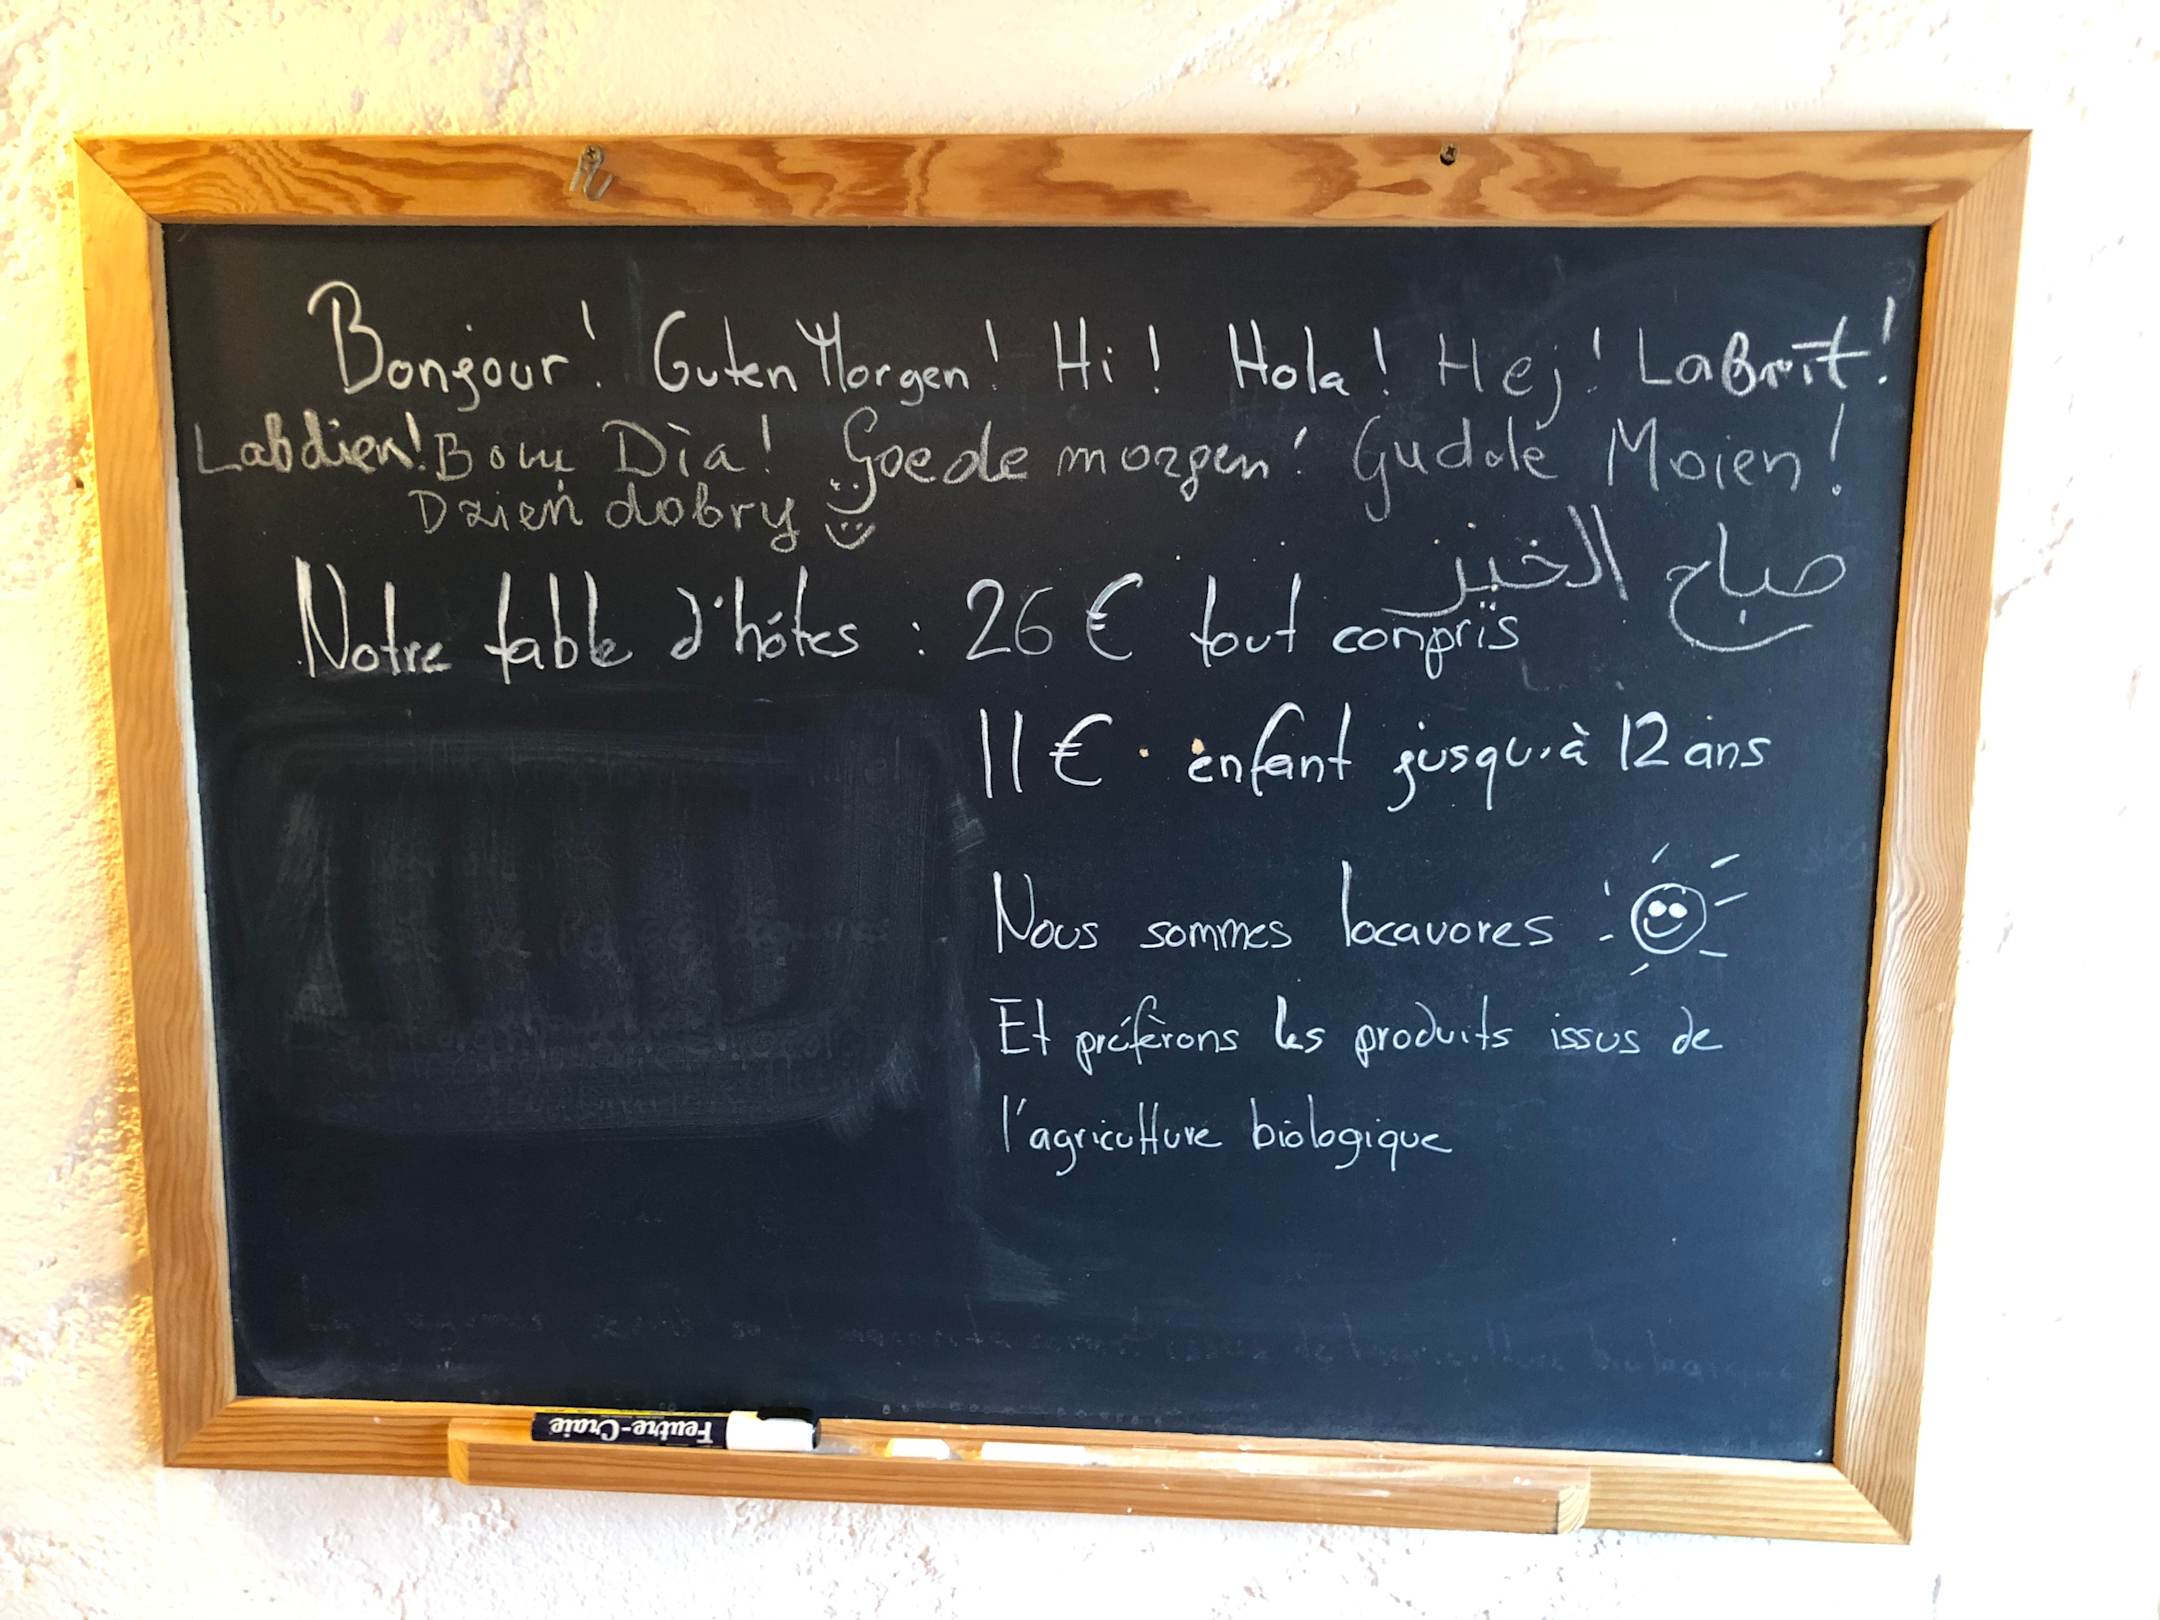 Bonjour! Guten Morgen! Hi! Hola! Hej! Labrīt!
Labdien! Bom Dìa! Goede morgen! Gudde Moien!
Dzień dobry
صباح الخير
Notre table d'hôtes : 26 € tout compris
11 € enfant jusqu'à 12 ans
Nous sommes locavores
Et préférons les produits issus de
l'agriculture biologique
Feutre-Craie